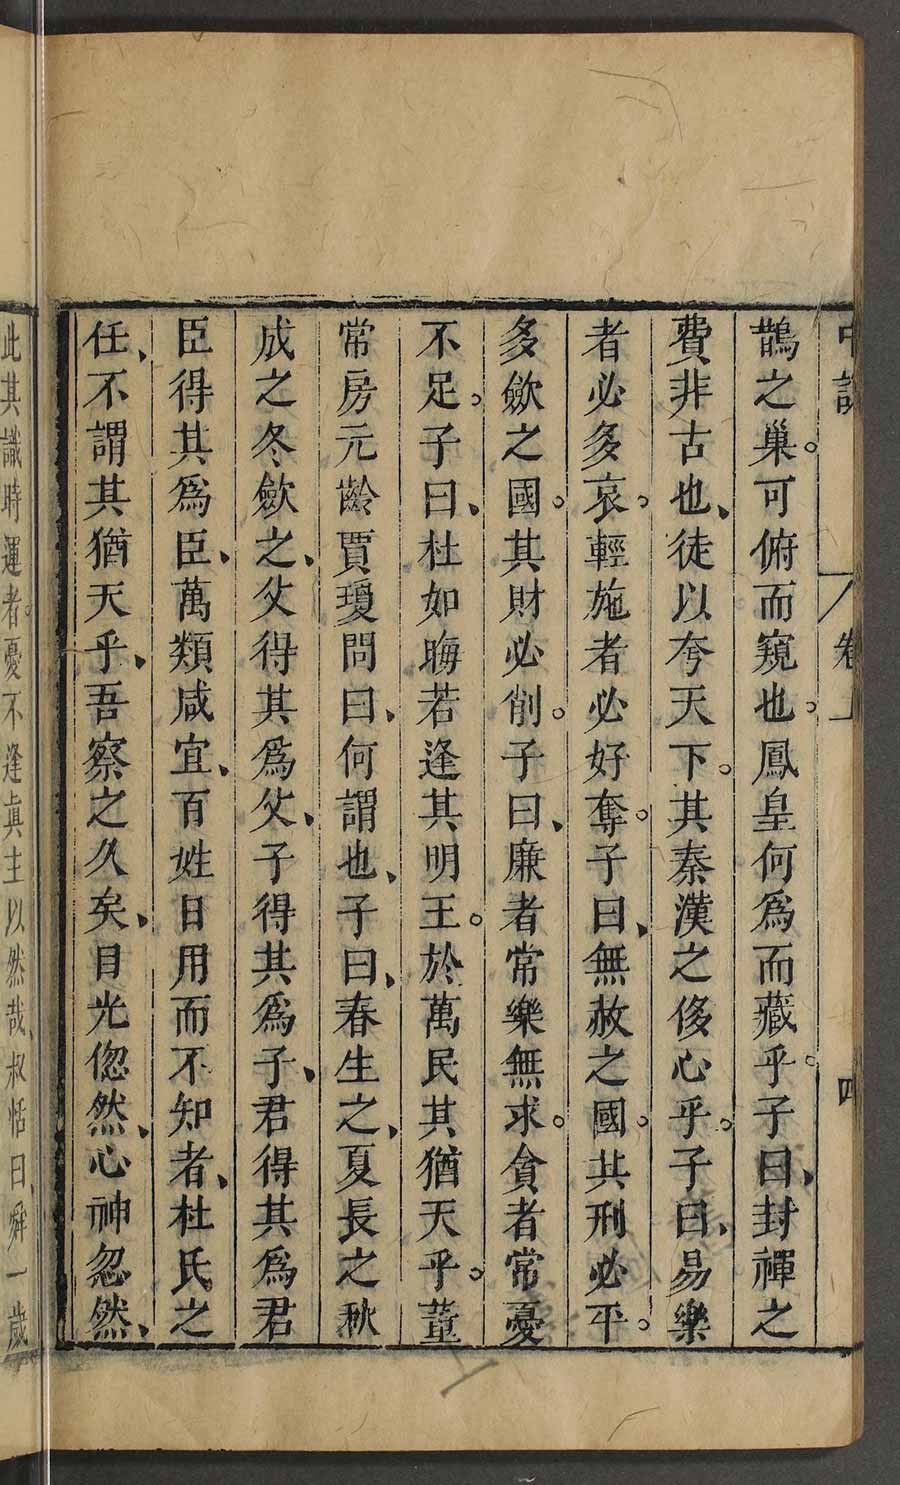 中說 卷上 四
鵲之巢。可俯而窺也。鳳皇何爲而藏乎。子曰、封禪之
費非古也、徒以夸天下。其秦漢之侈心乎。子曰、易樂
者必多哀。輕施者必好奪。子曰、無赦之國。其刑必平。
多歛之國。其財必削。子曰、廉者常樂無求。貪者常憂
不足。子曰、杜如晦若逢其明王。於萬民其猶天乎。董
常房元齡賈瓊問曰、何謂也、子曰、春生之、夏長之秋
成之冬歛之、父得其爲父、子得其爲子、君得其爲君
臣得其爲臣、萬類咸宜、百姓日用而不知者、杜氏之
任、不謂其猶天乎、吾察之久矣、目光偬然、心神忽然、
此其識時運者。憂不逢眞主以然哉、叔恬曰、舜一歲